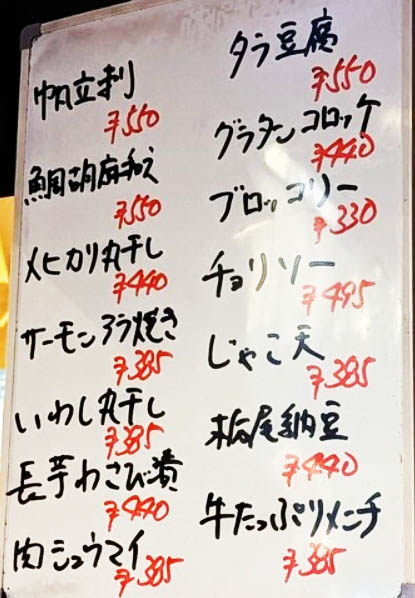 帆立刺
¥550
鯛胡麻和え
¥550
メヒカリ丸干し
¥440
サーモンアラ焼き
¥385
いわし丸干し
¥385
長芋わさび漬
¥440
肉シュウマイ
¥385
タラ豆腐
¥550
グラタンコロッケ
¥440
ブロッコリー
¥330
チョリソー
¥495
じゃこ天
¥385
栃尾納豆
¥440
牛たっぷりメンチ
¥385